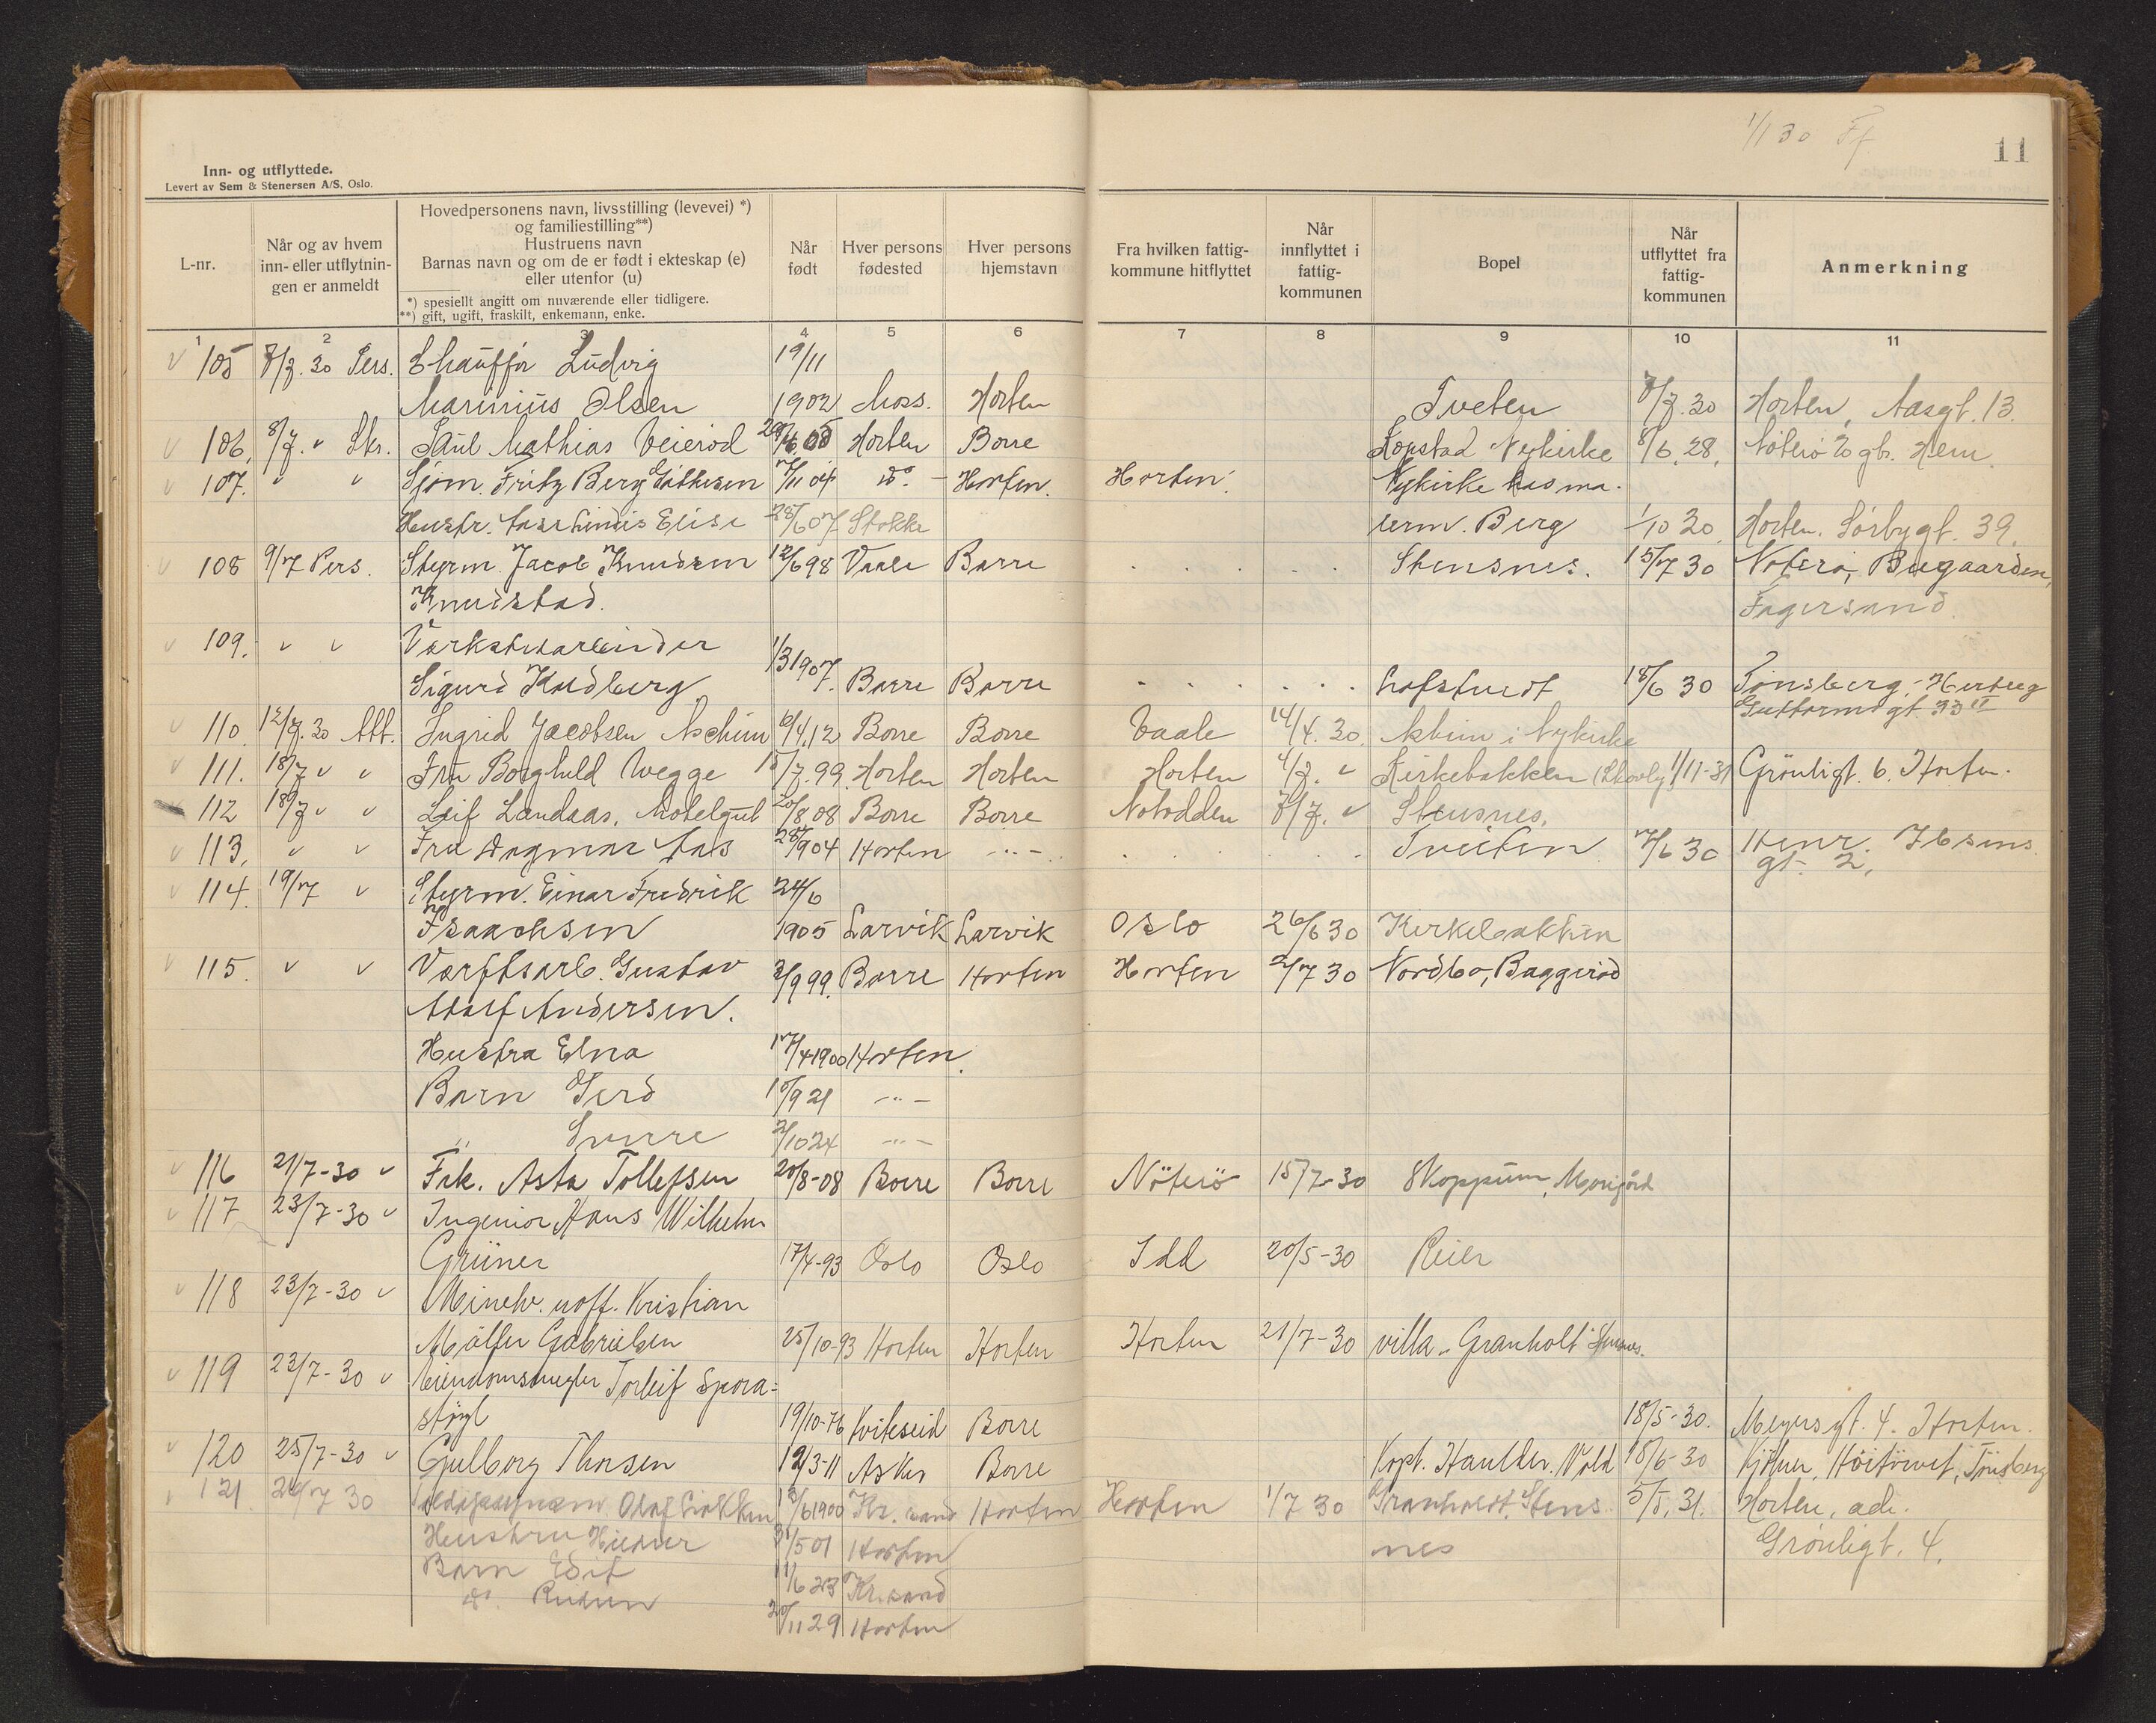 1/1 30 Ff
11
Inn- og utflyttede.
Levert av Sem & Stenersen A/S, Oslo.
L-nr.
Når og av hvem inn- eller utflytningen er anmeldt
Hovedpersonens navn, livsstilling (levevei) *)
og familiestilling**)
Hustruens navn
Barnas navn og om de er født i ekteskap (e)
eller utenfor (u)
*) spesiellt angitt om nuværende eller tidligere.
**) gift, ugift, fraskilt, enkemann, enke.
Når født
Hver persons fødested
Hver persons hjemstavn
Fra hvilken fattig-kommune hitflyttet
Når innflyttet i fattig-kommunen
Bopel
Når utflyttet fra fattig-kommunen
Anmerkning
1 2 3 4 5 6 7 8 9 10 11
105 7/7. 30 Pers. Chauffør Ludvig 19/11
Marinius Olsen 1902 Moss. Horten Tveten 7/7.30 Horten, Aasgt. 13.
106, 8/7. " Skr. Paul Mathias Veierød 29/6 05 Horten Borre Kopstad Nykirke 8/6.28. Nøterö gt. Hem.
107. " " Sjøm. Fritz Berg Gathesen 7/11 04 do. - Horten. Horten. Nykirke hos ma-
Hustr. Elise 28/6 07 Stokke term. Berg 1/10 30. Horten. Sørbygt. 39.
108 9/7 Pers. Styrm. Jacob Knudsen 12/6 98 Vaale Borre Stensnes. 15/7 30 Nøterø, Buegaarden,
Knudstad. Fagersand
109. " " Verkstedarbeider 1/3 1907.
Sigurd Borre Borre 18/6 30 Tønsberg, Hertug
Guttormsgt 33 II
110. 12/7.30 Att. Ingrid Jacobsen Aschim 6/4.12 Borre Borre Vaale 14/4. 30. Askim i Nykirke
111. 18/7 " " Fru Borghild Wegge 15/7.99. Horten Horten Horten 4/7. " Kirkebakken (Skovly 1/11-31 Grönligt. 6. Horten.
112 18/7 " " Leif Landaas. Motelgut 20/8.08 Borre Borre Notodden 7/7. " Stensnes.
113, " " Fru Dagmar Aas 28/9 04 Horten -"- Tveiten 7/6 30 Henr. Ibsens
gt. 2.
114. 19/7 " Styrm. Einar Fredrik 24/6
Isaachsen 1905 Larvik Larvik Oslo 26/6 30 Kirkebakken
115. " " Verftsarb. Gustav 3/9 99. Borre Horten Horten 2/7 30 Nordbo, Baggerød
Adolf Andersen.
Hustru Elna 17/4 1900 Horten.
Barn Gerd 15/9 21 -"-
" Sverre 2/10 24 -"-
116 21/7-30 " Frk. Asta Tollefsen 20/8-08 Borre Borre Nöterö 15/7-30 Skoppum,
117 23/7-30 " Ingeniør Hans Wilhelm
Grüner 17/4-93 Oslo Oslo Idd 20/5-30 Reier
118 23/7-30 " Minelv. uoff. Kristian
Møller Gabrielsen 25/10-93 Horten Horten Horten 21/7-30 villa "Granholt" Stensnes.
119 23/7-30 " Eiendomsmegler Torleif Spora=
støyl 19/10-76 Kviteseid Borre 18/5-30. Meyersgt. 4. Horten.
120 25/7-30 " Gulborg Thorsen 12/3-11 Asker Borre Kopt. Vold 18/6-30 Høitorvet, Tönsberg
121. 26/7 30 Olaf 13/6 1900 Kr.sand Horten Horten 1/7 30 Granholdt. Stens- 5/5. 31. Horten, adr.
Hustru 31/5 01 Horten nes Grønligt. 4.
Barn Edit 11/6 23 Kr.sand
do. 20/11 29 Horten